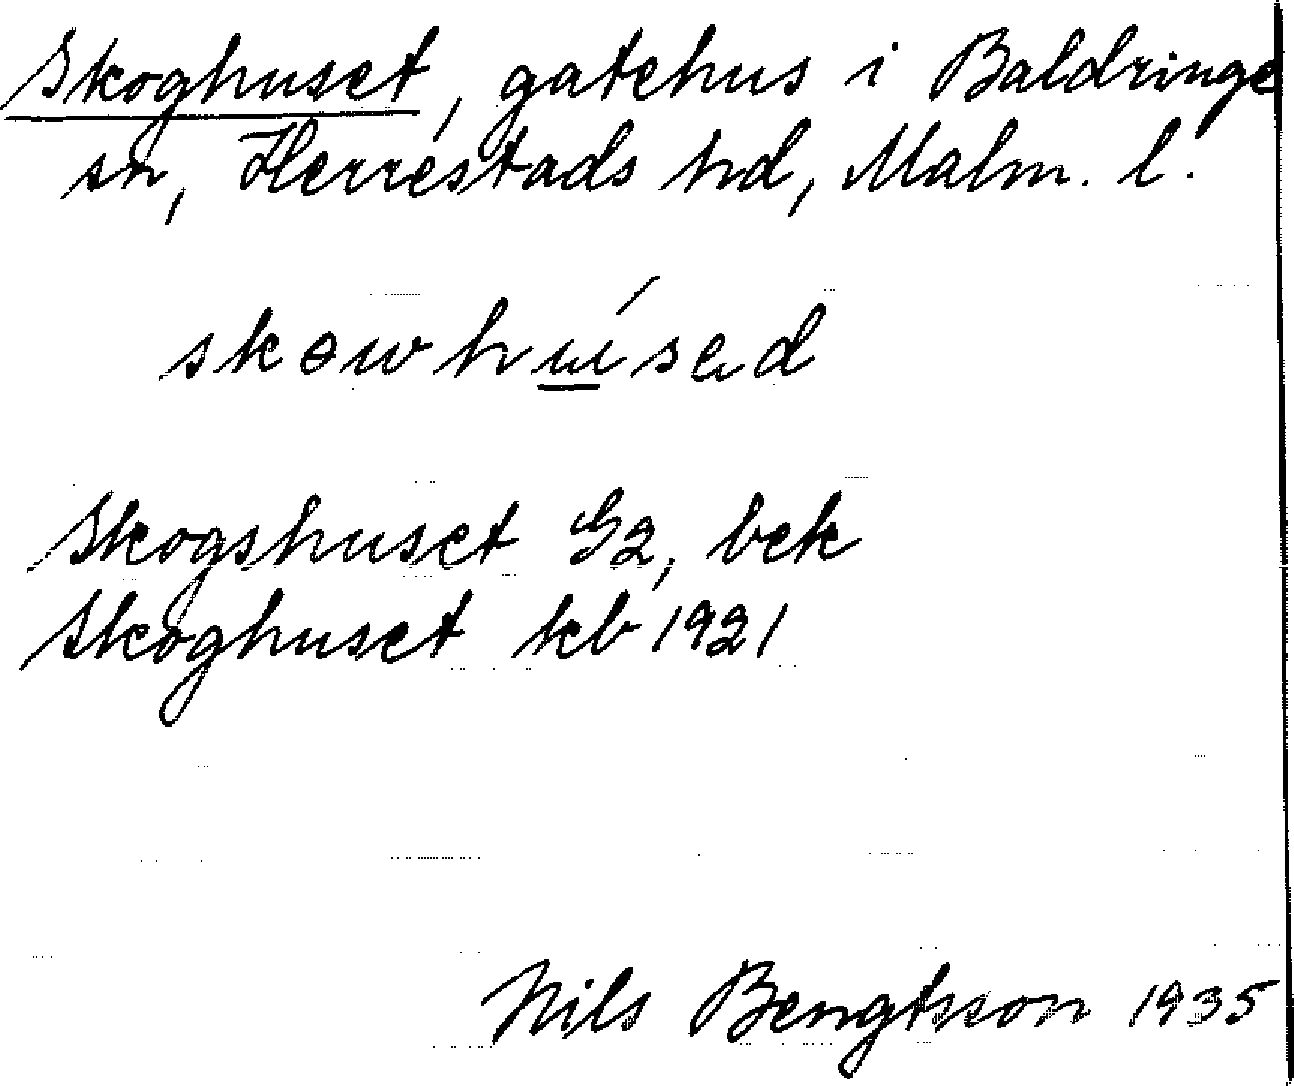 Skoghuset, gatehus i Baldringe
sn, Herrestads hd, Malm. l.
skɵwhúsad
Skogshuset G2, bek
Skoghuset kb 1921
Nils Bengtsson 1935